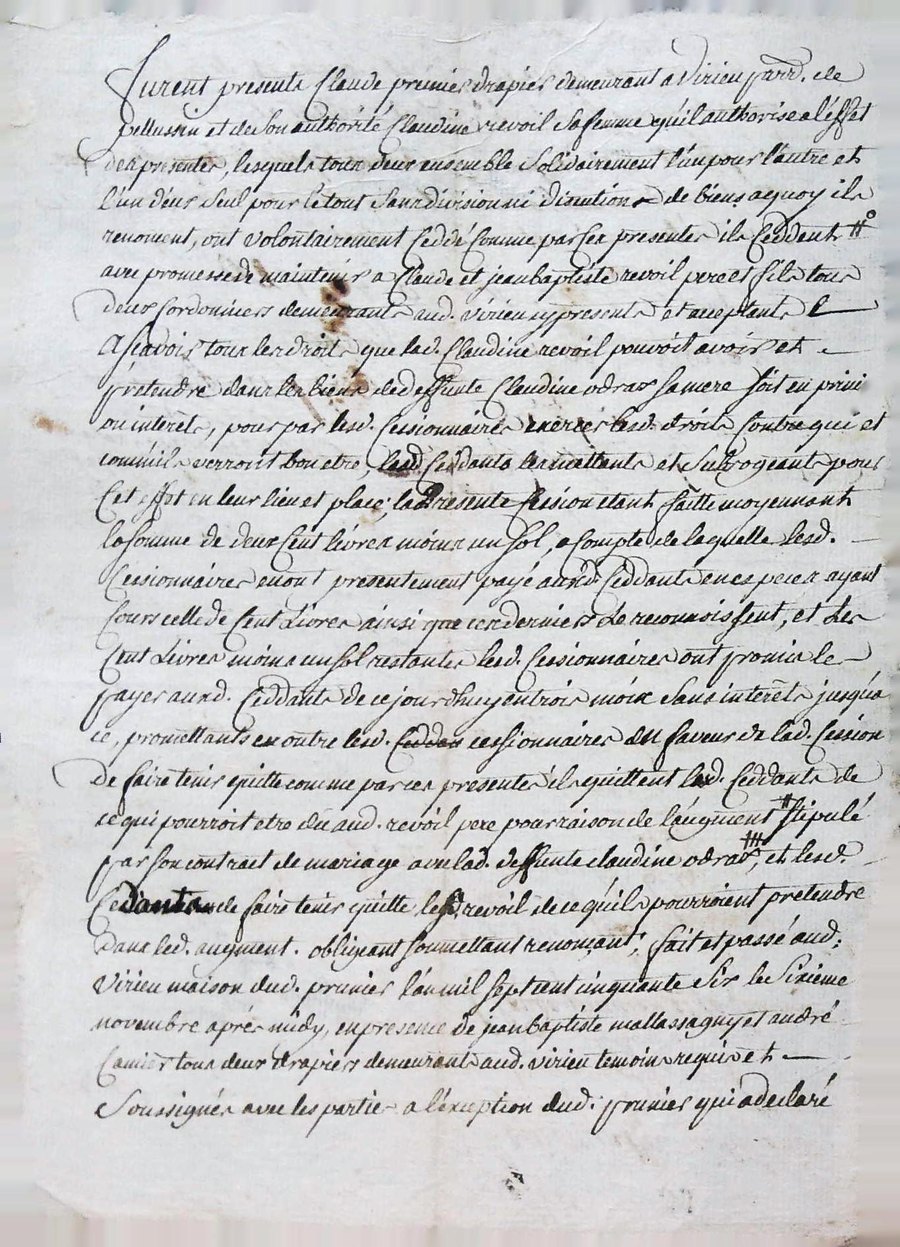 furent presents Claude prunier drapier demeurant a virieu parr. de
pellussin et de son authorité Claudine revoil sa femme qu'il authorise a l'effet
des presentes, lesquels tous deux ensemble solidairement l'un pour l'autre et
l'un d'eux seul pour le tout sans division ni discution de biens a quoy ils
renoncent, ont volontairement ceddé comme par ces presentes ils ceddent #°
avec promesse de maintenir a Claude et jean baptiste revoil pere et fils tous
deux cordonniers demeurants aud. virieu cy presents et acceptants
a sçavoir tous les droits que lad. Claudine revoil pouvoit avoir et
pretendre dans les biens de deffunte Claudine odras sa mere soit en prin.
ou interets, pour par lesd. cessionnaires exercer lesd. droits contre qui et
comm'ils verront bon etre, lesd. ceddants les mettants et subrogeants pour
cet effet en leur lieu et place; la presente cession etant faitte moyennant
la somme de deux cent livres moins un sol, a compte de laquelle lesd.
cessionnaires en ont presentement payé auxd. ceddants en especes ayant
cours celle de cent livres ainsi que ces derniers le reconnoissent, et les
cent livres moins un sol restantes lesd. cessionnaires ont promis le
payer auxd. ceddants de ce jourdhuy en trois mois sans interets jusqu'a
ce, promettants en outre lesd. cessionnaires en faveur de lad. cession
de faire tenir quitte comme par ces presentes ils quittent lesd. ceddants de
ce qui pourroit etre du aud. revoil pere pour raison de l'augment # stipulé
par son contrat de mariage avec lad. deffunte claudine odras, # et lesd.
cedants de faire tenir quitte lesd. revoil de ce qu'ils pourroient pretendre
dans led. augment. obligeant soumettant renonçant; fait et passé aud.
virieu maison dud. prunier l'an mil sept cent cinquante six le sixieme
novembre aprés midy, en presence de jean baptiste mallassagny et andré
Camier tous deux drapiers demeurants aud. virieu temoins requis et
soussignés avec les parties a l'exception dud. prunier qui a declaré